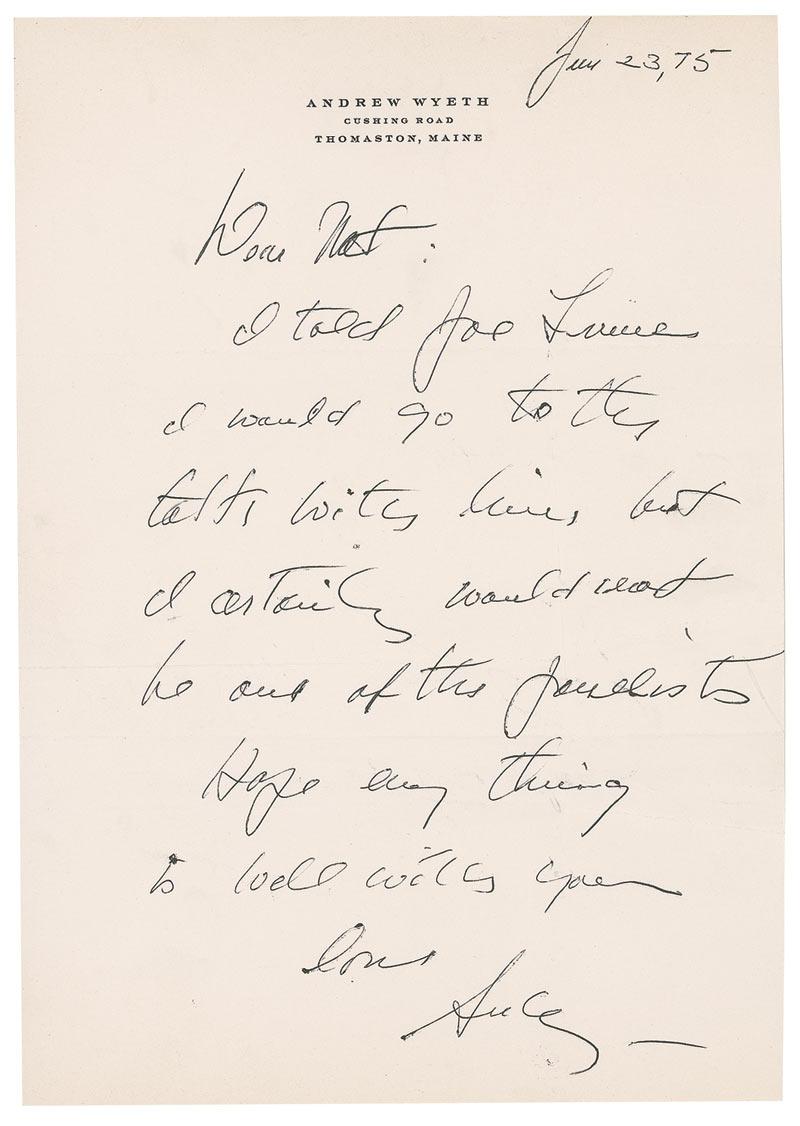 June 23, 75
ANDREW WYETH
CUSHING ROAD
THOMASTON, MAINE
Dear Nat:
I told Joe
I would go to the
talks with him, but
I certainly would not
be one of the panelists
Hope any thing
is well with you
love
Andy —